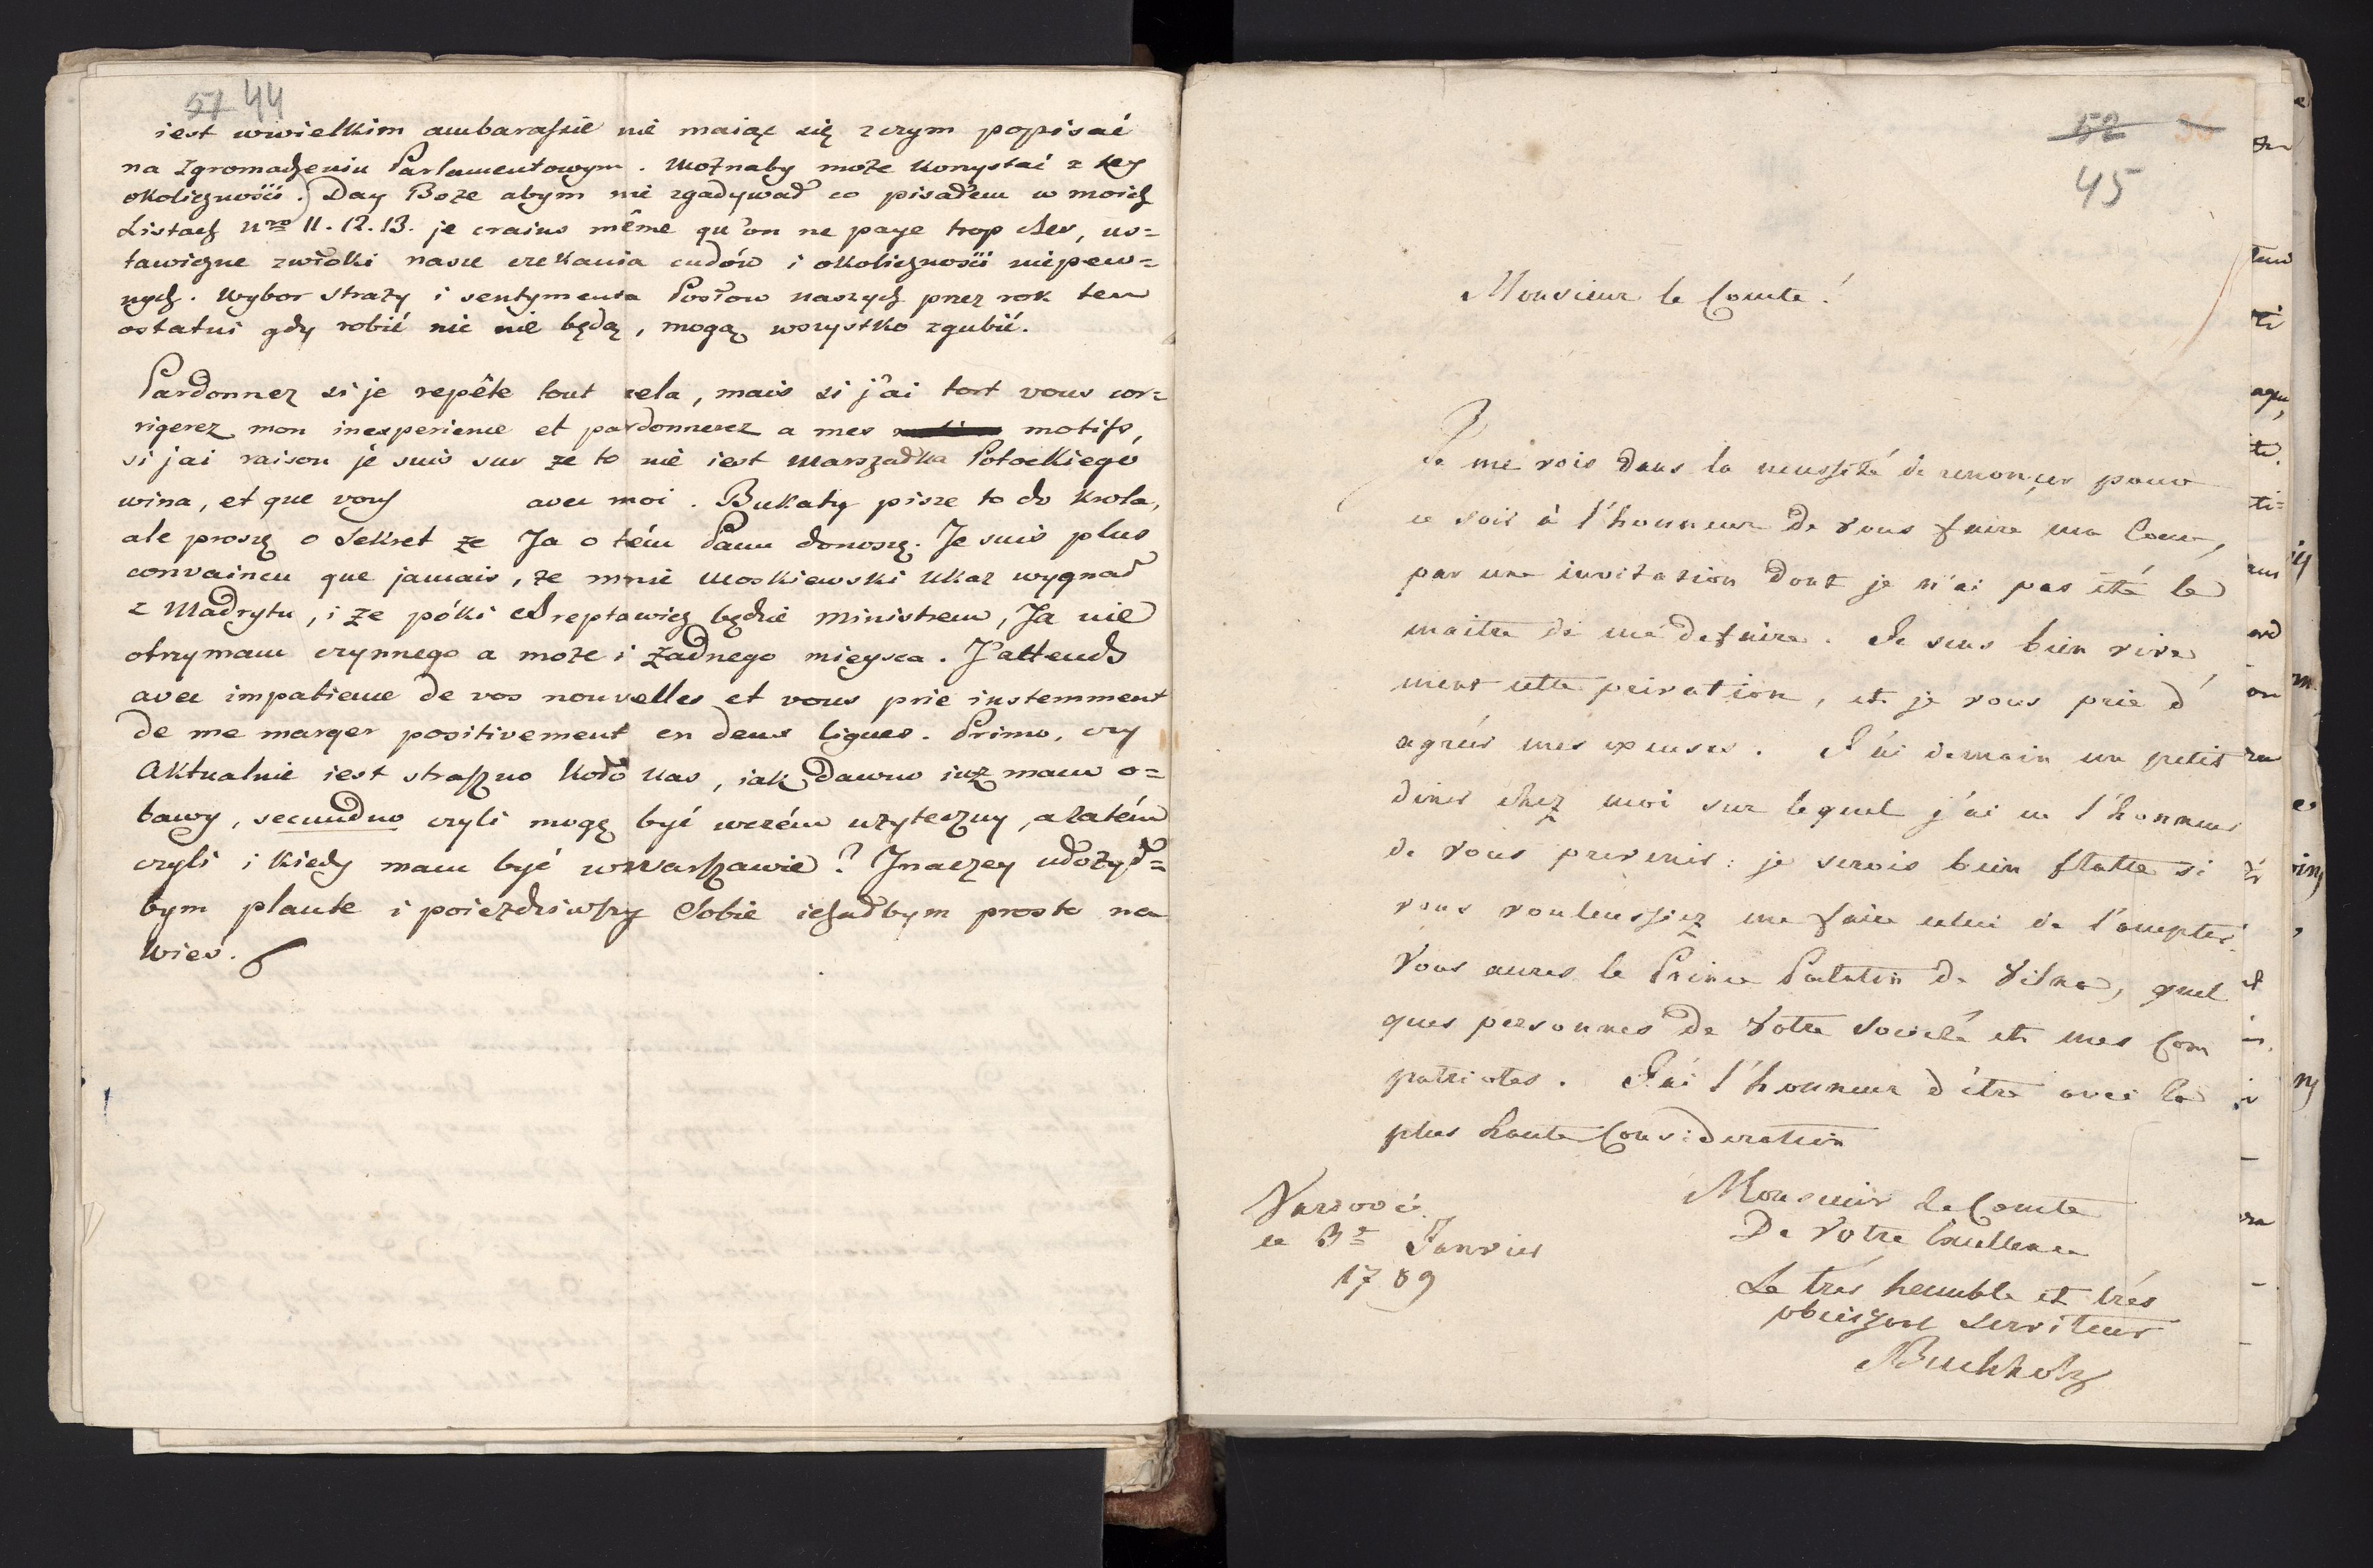 51 44
iest wwielkim ambarassie nie maiąc się zczym popisać
na Zgromadzeniu Parlamentowym. Możnaby może Korzystać z tey
okoliczności.) Day Boże abym nie zgadywał co pisałem w moich
Listach Nro 11. 12. 13. je crains même qu'on ne paye trop cher, us=
tawiczne zwłoki nasze czekania cudów i okoliczności niepew=
nych. Wybor Straży i sentymenta Posłow naszych przez rok ten
ostatni gdy robić nic nie będą, mogą wszystko zgubić.
Pardonnez si je repête tout cela, mais si j'ai tort vous cor=
rigerez mon inexperience et pardonnerez a mes motifs,
si j'ai raison je suis sur że to nie iest Marszałka Potockiego
wina, et que vous avec moi. Bukaty pisze to do Krola,
ale proszę o Sekret że Ja o tém Panu donoszę. Je suis plus
convaincu que jamais, że mnie Moskiewski Ukaz wygnał
z Madrytu, i że póki Chreptowicz będzie Ministrem, Ja nie
otrzymam czynnego a może i żadnego mieysca. J'attends
avec impatience de vos nouvelles et vous prie instemment
de me marqer positivement en deux lignes. Primo, czy
Aktualnie iest straszno koło Nas, iak dawno iuż mam o=
bawy, secundno czyli mogę być wczém użyteczny, a zatém
czyli i kiedy mam być w Warszawie? Inaczey ułożył=
bym plante i poieździwszy Sobie iechałbym prosto na
wieś.
52 36
45
Monsieur le Comte!
Je me vois dans la necessité de renonçer pour
ce soir à l'honneur de vous faire ma Cour,
par une invitation dont je n'ai pas été le
maitre de me defaire. Je sens bien vive
ment cette privation, et je vous prie d'
agréer mes excuses. J'ai demain un petit
diner chez moi sur lequel j'ai eu l'honneur
de vous prevenir: je serois bien flatté si
vous voulussiez me faire celui de l'accepter.
Vous aures le Prince Palatin de Vilna, quel
ques personnes de Votre Societé et mes Com
patriotes. J'ai l'honneur d'être avec la
plus haute Consideration
Monsieur le Comte
De Votre Excellence
Varsovie
ce 3e Janvier
1789
Le très humble et très
obeissant serviteur
Buchholtz